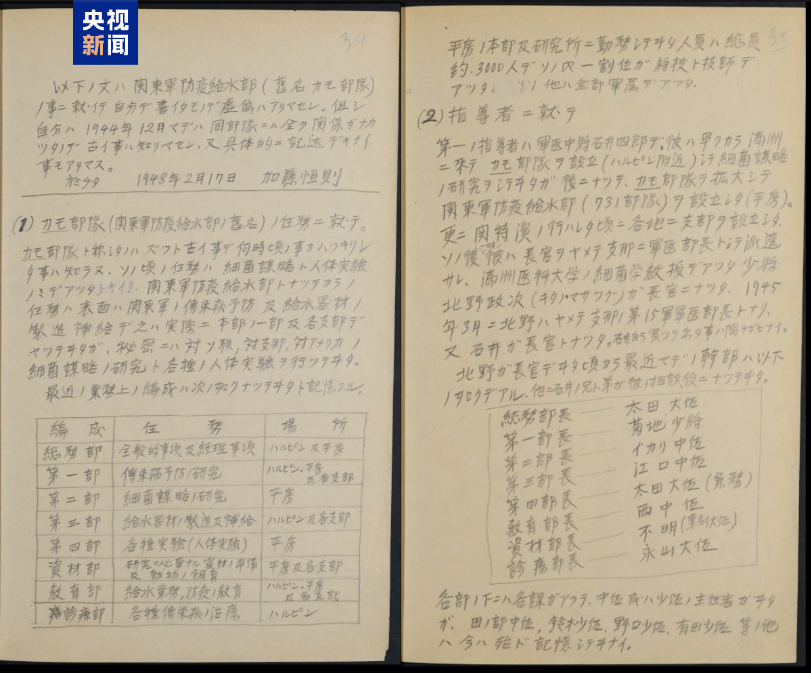 央视
新闻
34
以下ノ文ハ関東軍防疫給水部(舊名カモ部隊)
ノ事ニ就イテ自分デ書イタモノデ虚偽ハアリマセン。但シ
自分ハ1944年12月マデハ同部隊ニハ全ク関係ガナカ
ツタノデ古イ事ハ知リマセン、又具体的ニ記述デキナイ
事モアリマス。
1948年2月17日 加藤恒則
(1) カモ部隊(関東軍防疫給水部ノ舊名)ノ任務ニ就テ。
カモ部隊ト称シタノハズツト古イ事デ何時頃ノ事カハツキリシ
タ事ハ知ラヌ。ソノ頃ノ任務ハ細菌謀略ト人体実験
ノミデアツタ 関東軍防疫給水部トナツテカラノ
任務ハ表面ハ関東軍ノ傳染病予防及給水器材ノ
製造補給デ之ハ実際ニ本部ノ一部及各支部デ
ヤツテヰタガ、秘密ニハ対ソ聯、対支那、対アメリカノ
細菌謀略ノ研究ト各種ノ人体実験ヲ行ツテヰタ。
最近ノ業務上ノ編成ハ次ノ如クナツテヰタト記憶スル。
編成 任務 場所
総務部 全般的事項及経理事項 ハルピン及平房
第一部 傳染病予防ノ研究 ハルピン、平房及各支部
第二部 細菌謀略ノ研究 平房
第三部 給水器材ノ製造及補給 ハルピン及各支部
第四部 各種実験(人体実験) 平房
資材部 研究ニ必要ナル資材ノ準備及動物ノ飼育 平房及各支部
教育部 給水業務、防疫ノ教育 ハルピン、平房及各支部
診療部 各種傳染病ノ治療 ハルピン
35
平房ノ本部及研究所ニ勤務シテヰタ人員ハ総員
約3000人デソノ内一割位ガ将校ト技師デ
アツタ。 他ハ全部軍属デアツタ。
(2) 指導者ニ就テ
第一ノ指導者ハ軍医中将石井四郎デ、彼ハ早クカラ満洲
ニ来テカモ部隊ヲ設立(ハルピン附近)シテ細菌謀略
ノ研究ヲシテヰタガ後ニナツテ、カモ部隊ヲ拡大シテ
関東軍防疫給水部(731部隊)ヲ設立シタ(平房)。
更ニ関特演ノ行ハレタ頃ニ各地ニ支部ヲ設立シタ。
ソノ後彼ハ長官ヲヤメテ支那ニ軍医部長トシテ派遣
サレ、満洲医科大学ノ細菌学教授デアツタ少将
北野政次(キタノマサツグ)ガ長官ニナツタ。1945
年3月ニ北野ハヤメテ支那ノ第15軍軍医部長トナリ、
又石井ガ長官トナツタ。
北野ガ長官デヰタ頃カラ最近マデノ幹部ハ以下
ノ如クデアル。他ニ石井ノ兄ノ弟カ彼ノ相談役ニナツテヰタ。
総務部長 — 太田大佐
第一部長 — 菊地少将
第二部長 — イカリ中佐
第三部長 — 江口中佐
第四部長 — 太田大佐(兼務)
教育部長 — 西中佐
資材部長 — 不明(薬剤大佐)
診療部長 — 永山大佐
各部ノ下ニハ各課ガアツテ、中佐又ハ少佐ノ主任者ガヰタ
ガ、田ノ部中佐、鈴木少佐、野口少佐、有田少佐等ノ他
ハ今ハ殆ド記憶シテヰナイ。